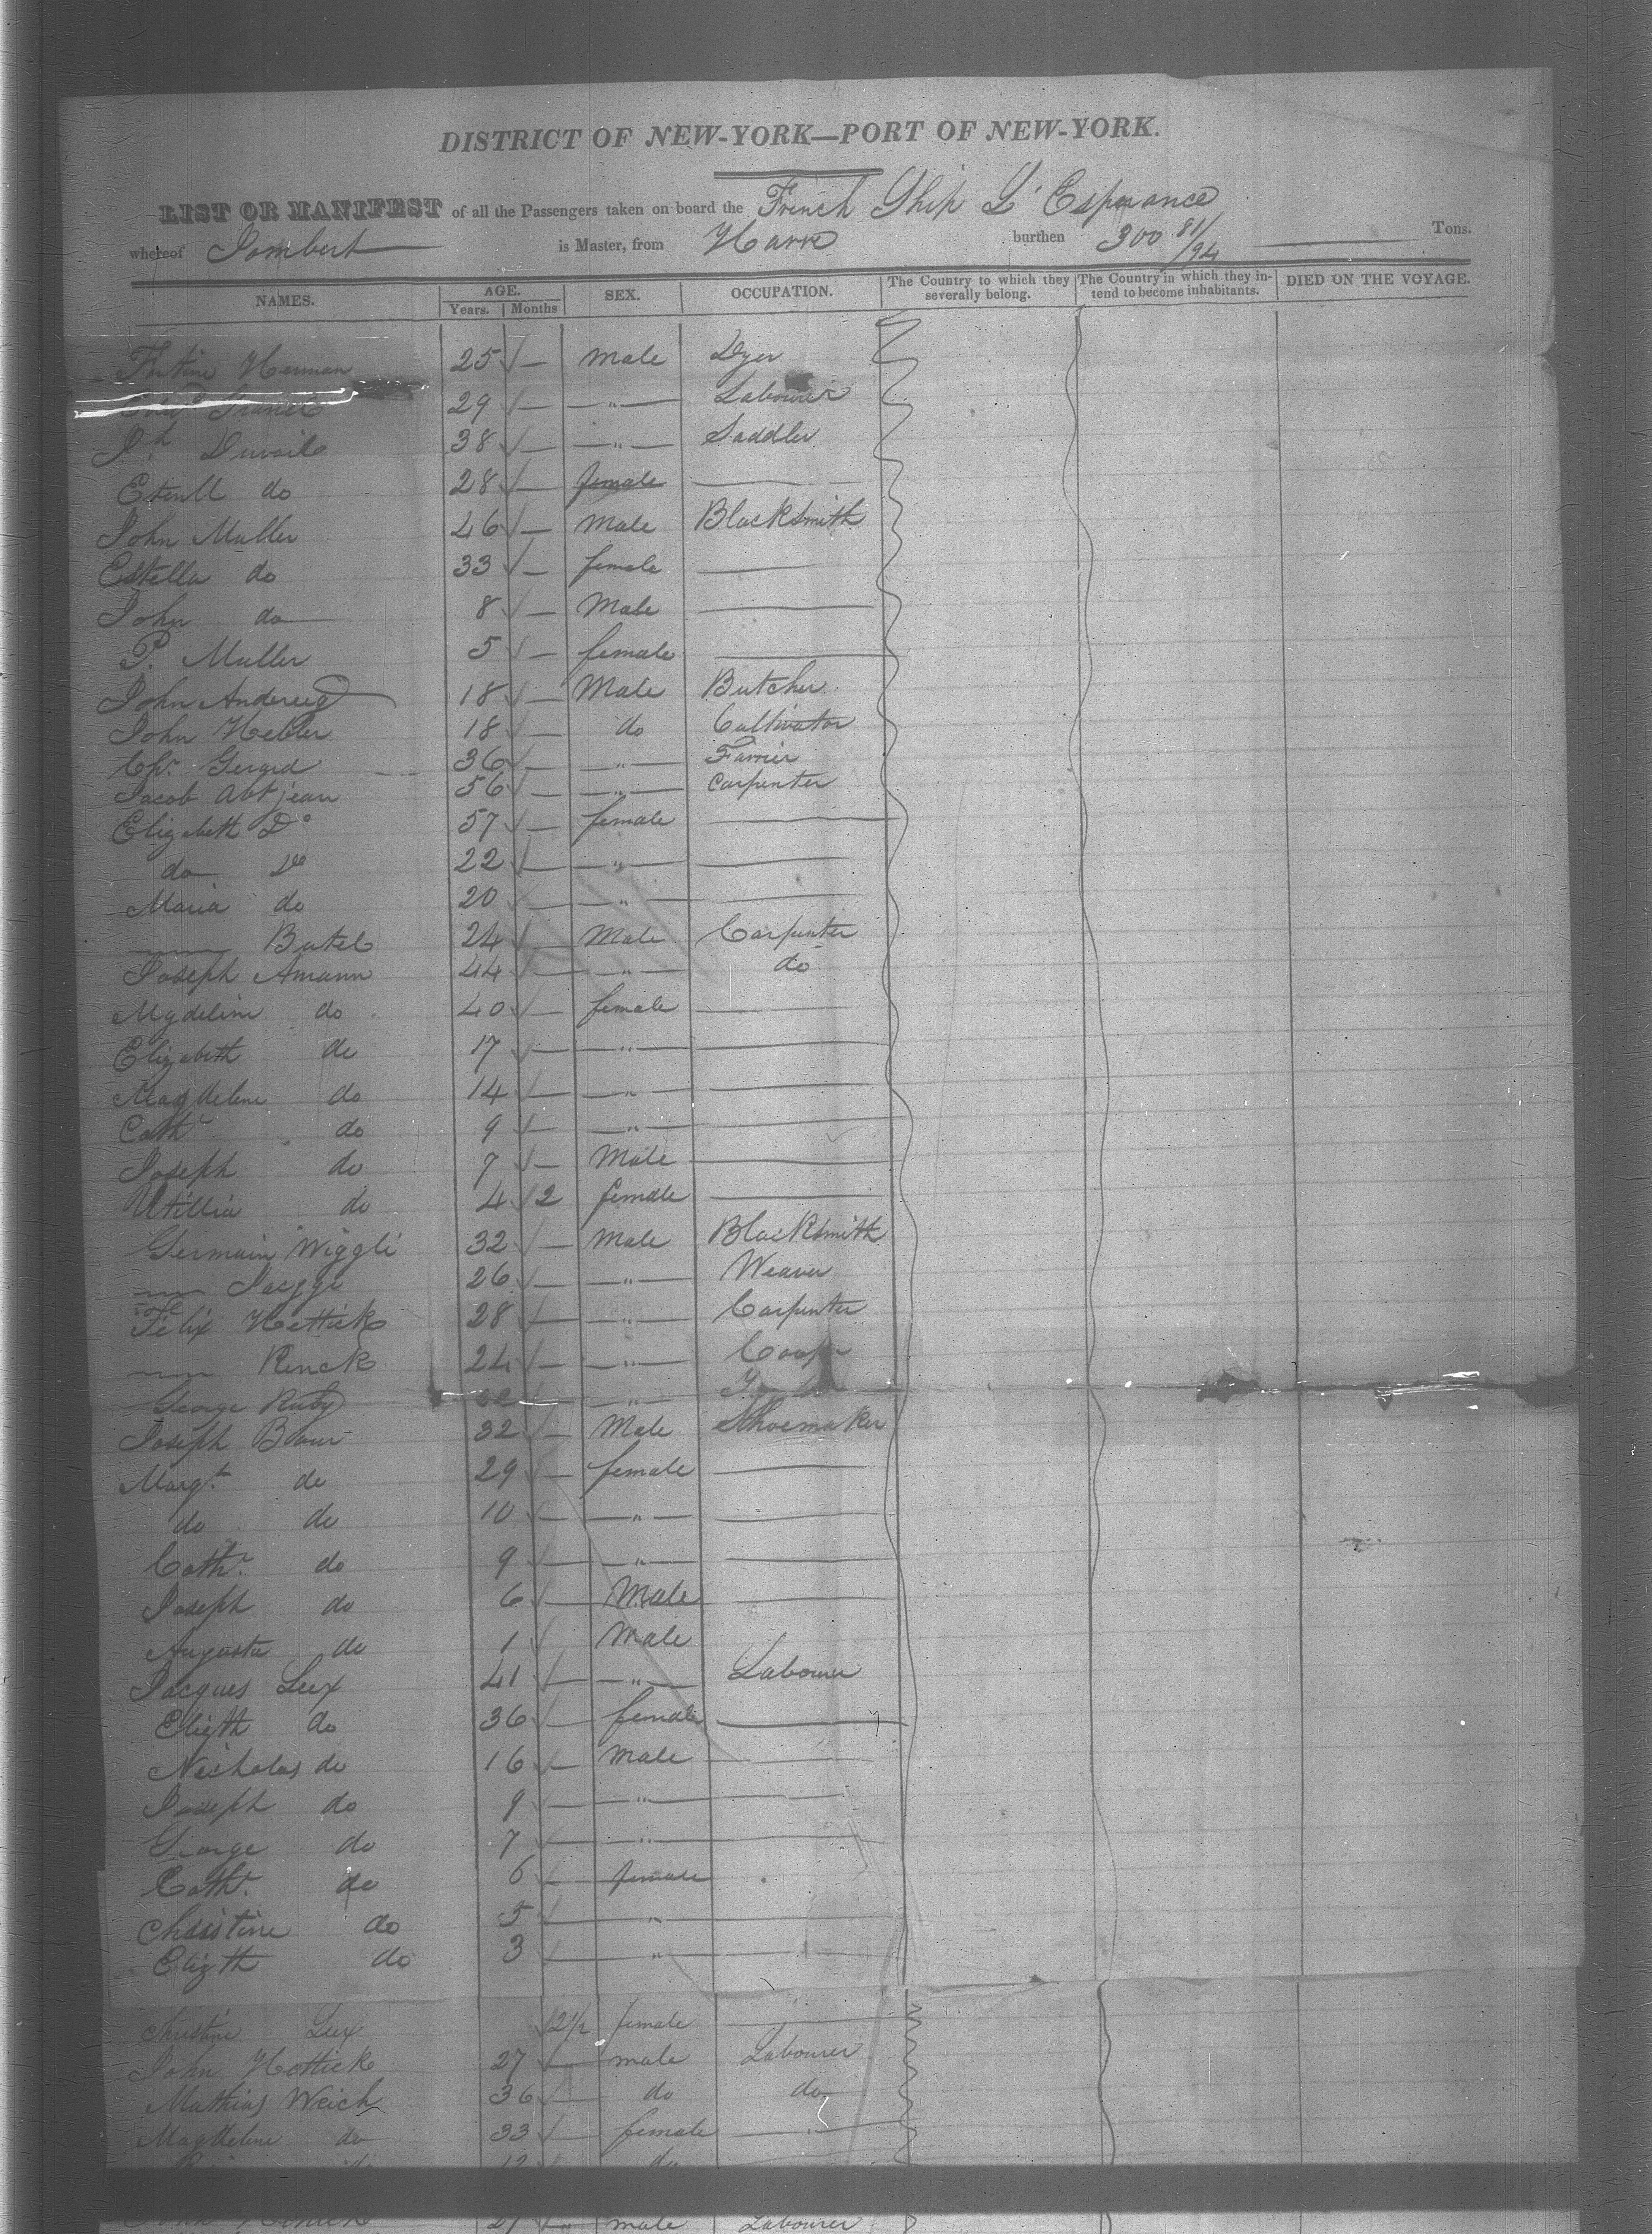 DISTRICT OF NEW-YORK—PORT OF NEW-YORK.
LIST OR MANIFEST of all the Passengers taken on board the French Ship L'Esperance
whereof Jombert is Master, from Havre burthen 300 81/94 Tons.
NAMES. AGE. Years. Months SEX. OCCUPATION. The Country to which they severally belong. The Country in which they intend to become inhabitants. DIED ON THE VOYAGE.
Herman 25 — male Dyer
29 — " Labourer
38 — " Saddler
do 28 — female —
John Muller 46 — Male Blacksmith
Estella do 33 — female —
John do 8 — Male —
P. Muller 5 — female —
John Andereg 18 — Male Butcher
John Hebler 18 — do Cultivator
Chr. Gerard 36 — " Farrier
Jacob Abtjean 56 — " Carpenter
Elizabeth Do 57 — female —
do Do 22 — " —
Maria do 20 — " —
— Butel 24 — Male Carpenter
Joseph Amann 44 — " do
Mydelini do 40 — female —
Elizabeth do 17 — " —
Magdelene do 14 — " —
Cathr do 9 — " —
Joseph do 7 — Male —
Utillia do 4 2 female —
Germain Wiggli 32 — Male Blacksmith
— Jaeggi 26 — " Weaver
Felix Hettick 28 — " Carpenter
— Renck 24 — " Cooper
George Ruby — "
Joseph Baur 32 — Male Shoemaker
Margt. do 29 — female —
do do 10 — " —
Cathr. do 9 — " —
Joseph do 6 — Male —
Augusta do 1 Male
Jacques Lux 41 — " Labourer
Elizth do 36 — female —
Nicholas do 16 — male —
Joseph do 9 — " —
George do 7 — " —
Cathr. do 6 — female
Christine do 5 — " —
Elizth do 3 — " —
Christine Lux 2 1/2 female —
John Hettick 27 — male Labourer
Mathias Weich 36 — do do
Magdelene do 33 — female — " —
12 do
27 male Labourer